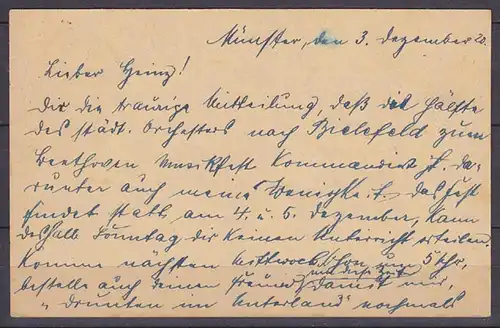 Münster, den 3. Dezember 20.
Lieber Heinz!
Dir die traurige Mitteilung, daß die Hälfte
des städt. Orchesters nach Bielefeld zum
Beethoven Musikfest kommandiert ist. da-
runter auch meine Wenigkeit. das Fest
findet statt am 4. u. 5. dezember, kann
deshalb Sonntag dir keinen Unterricht erteilen.
Komme nächsten Mittwoch schon zum 5 Uhr,
bestelle auch deinen Freund damit wir,
„drunten im Unterland" nochmals